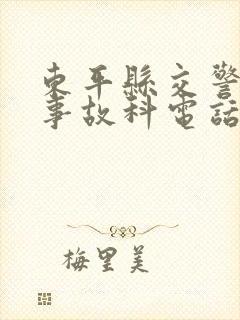 東平縣交警
事故科電話
梅里美